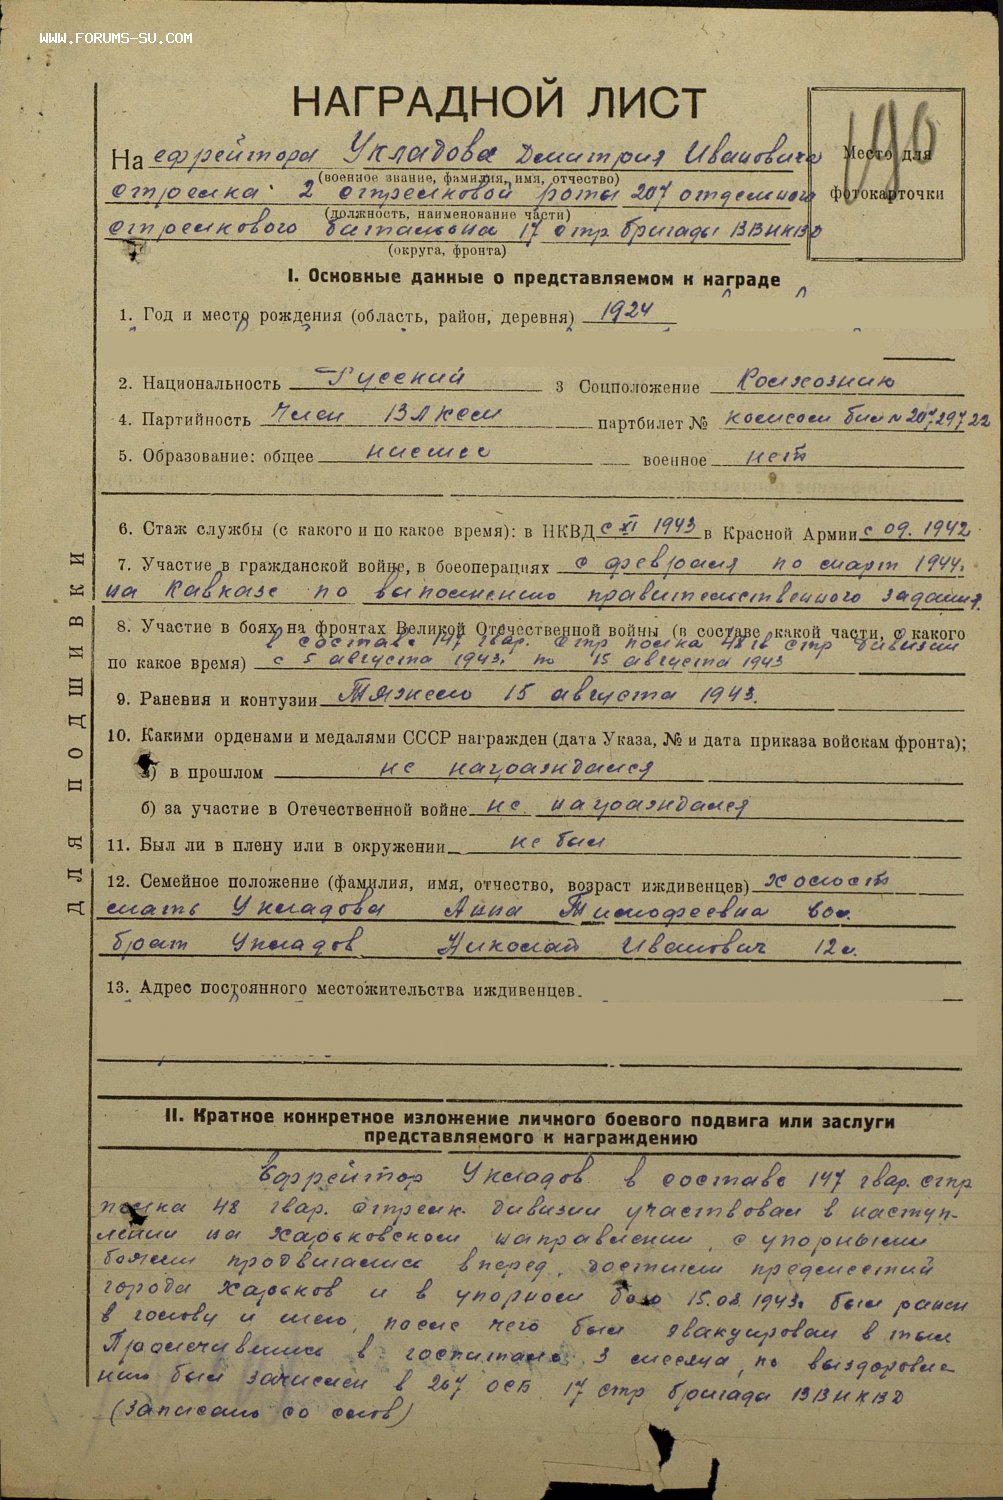 WWW.FORUMS-SU.COM
НАГРАДНОЙ ЛИСТ
190
Место для
фотокарточки
На ефрейтора Укладова Дмитрия Ивановича
(военное звание, фамилия, имя, отчество)
стрелка 2 стрелковой роты 207 отдельного
(должность, наименование части)
стрелкового батальона 17 стр. бригады ВВНКВД
(округа, фронта)
I. Основные данные о представляемом к награде
1. Год и место рождения (область, район, деревня) 1924
2. Национальность Русский 3 Соцположение Колхозник
4. Партийность Член ВЛКСМ партбилет № комсом бил №
5. Образование: общее низшее военное нет
6. Стаж службы (с какого и по какое время): в НКВД с XI 1943 в Красной Армии с 09. 1942
7. Участие в гражданской войне, в боеоперациях с февраля по март 1944г.
на Кавказе по выполнению правительственного задания.
8. Участие в боях на фронтах Великой Отечественной войны (в составе какой части, с какого
в составе 147 гвар. стр полка 48 гв стр дивизии
по какое время) с 5 августа 1943г. по 15 августа 1943
9. Ранения и контузии Тяжело 15 августа 1943.
10. Какими орденами и медалями СССР награжден (дата Указа, № и дата приказа войскам фронта);
а) в прошлом не награждался
б) за участие в Отечественной войне не награждался
11. Был ли в плену или в окружении не был
12. Семейное положение (фамилия, имя, отчество, возраст иждивенцев) холост
мать Укладова Анна Тимофеевна
брат Укладов Николай Иванович 12 л.
13. Адрес постоянного местожительства иждивенцев.
ДЛЯ ПОДШИВКИ
II. Краткое конкретное изложение личного боевого подвига или заслуги
представляемого к награждению
Ефрейтор Укладов в составе 147 гвар. стр
полка 48 гвар. стрелк. дивизии участвовал в наступ-
лении на Харьковском направлении, с упорными
боями продвигались вперед, достигли предместий
города Харьков и в упорном бою 15.08.1943г. был ранен
в голову и шею, после чего был эвакуирован в тыл
Пролечившись в госпитале 3 месяца, по выздоровле-
нию был зачислен в 207 ОСБ 17 стр бригады ВВНКВД
(Записано со слов)